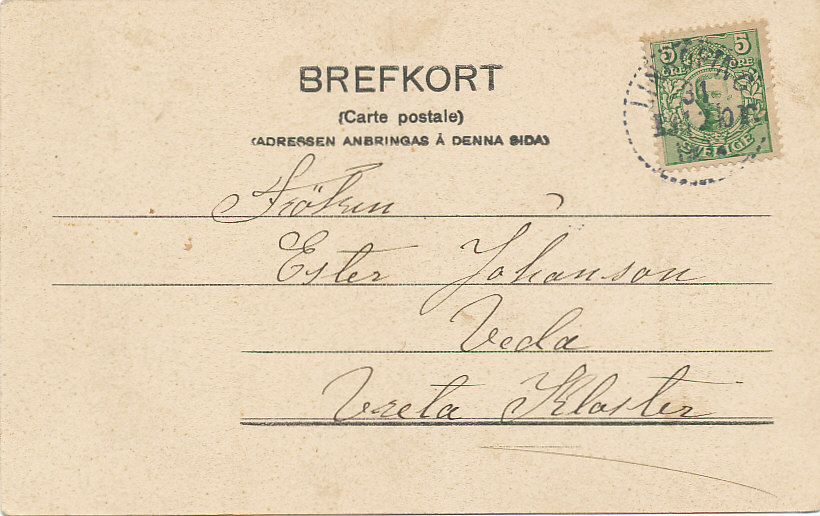 BREFKORT
(Carte postale)
(ADRESSEN ANBRINGAS Å DENNA SIDA)
5 5
ÖRE ÖRE
SVERIGE
LINKÖPING
31
Fröken
Ester Johanson
Veda
Vreta Kloster